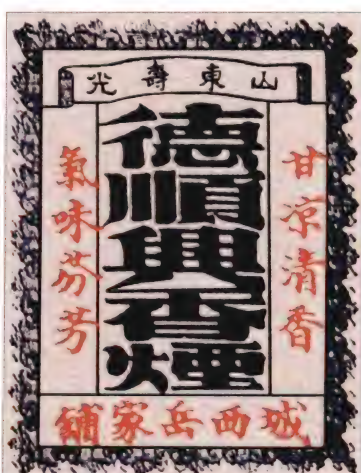 山東壽光
甘凉清香
德順興香煙
氣味芬芳
城西岳家鋪